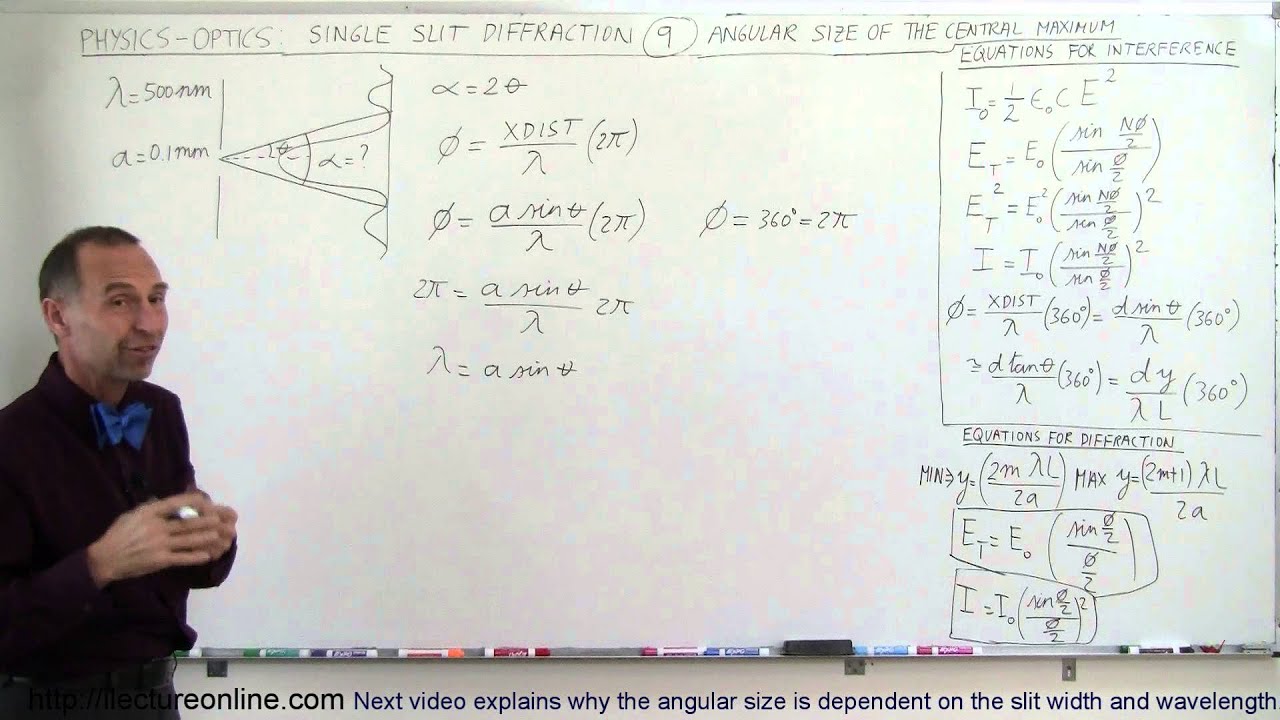 PHYSICS-OPTICS: SINGLE SLIT DIFFRACTION 9 ANGULAR SIZE OF THE CENTRAL MAXIMUM
λ=500nm
a=0.1mm
θ
α=?
α=2θ
φ = XDIST/λ (2π)
φ = a sin θ/λ (2π) φ = 360° = 2π
2π = a sin θ/λ 2π
λ = a sin θ
EQUATIONS FOR INTERFERENCE
I₀ = 1/2 ε₀ c E²
E_T = E₀ (sin Nφ/2 / sin φ/2)
E_T² = E₀² (sin Nφ/2 / sin φ/2)²
I = I₀ (sin Nφ/2 / sin φ/2)²
φ = XDIST/λ (360°) = d sin θ/λ (360°)
≅ d tan θ/λ (360°) = d y/λ L (360°)
EQUATIONS FOR DIFFRACTION
MIN⇒ y = (2m λL/2a) MAX y = (2m+1) λL/2a
E_T = E₀ (sin φ/2 / φ/2)
I = I₀ (sin φ/2 / φ/2)²
http://ilectureonline.com Next video explains why the angular size is dependent on the slit width and wavelength.